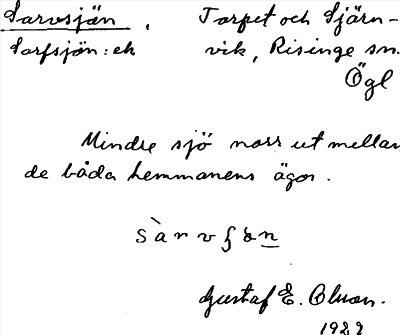 Sarvsjön, Torpet och Stjärn-
Sarfsjön: ek vik, Risinge sn.
Ögl
Mindre sjö norr ut mellan
de båda hemmanens ägor.
Gustaf E. Olsson.